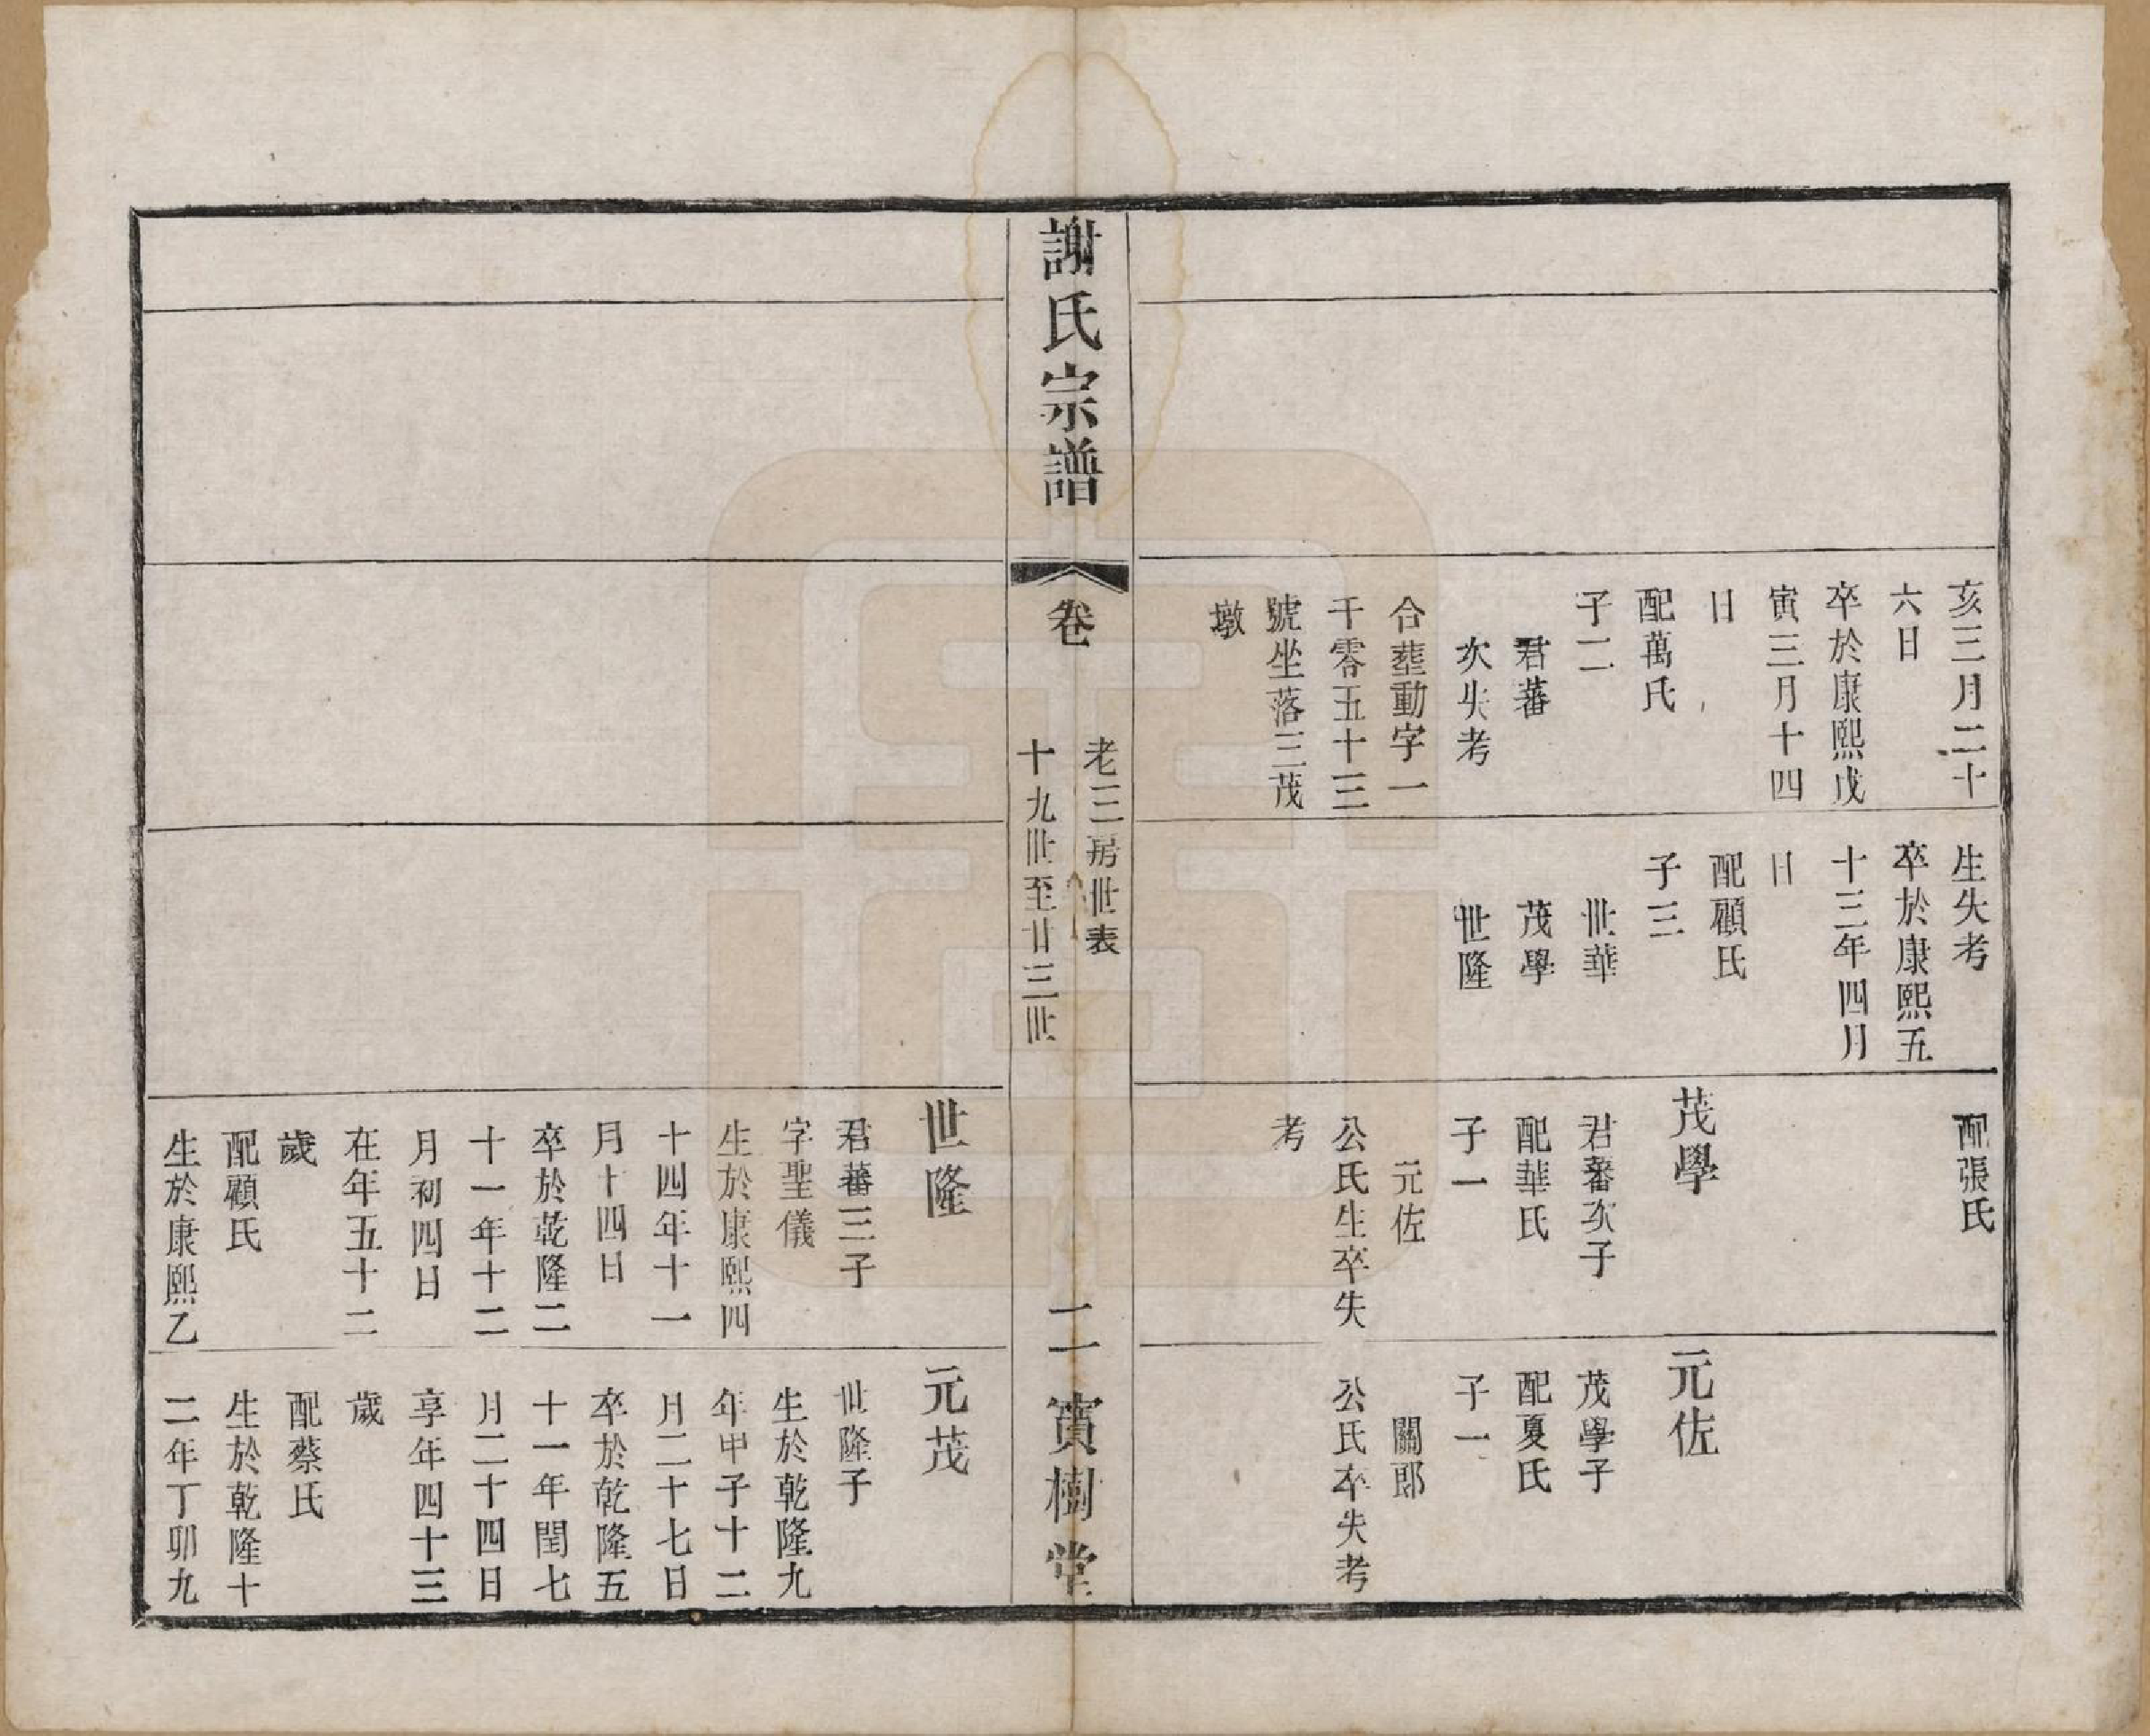 亥三月二十
六日
卒於康熙戊
寅三月十四
日
配萬氏
子二
君蕃
次失考
合塟動字一
千零五十三
號坐落三茂
墩
生失考
卒於康熙五
十三年四月
日
配顧氏
子三
世華
茂學
世隆
配張氏
茂學
君蕃次子
配華氏
子一
元佐
公氏生卒失
考
元佐
茂學子
配夏氏
子一
關郎
公氏卒失考
謝氏宗譜
卷
老三房世表
十九世至廿三世
二
寳樹堂
世隆
君蕃三子
字聖儀
生於康熙四
十四年十一
月十四日
卒於乾隆二
十一年十二
月初四日
在年五十二
歲
配顧氏
生於康熙乙
元茂
世隆子
生於乾隆九
年甲子十二
月二十七日
卒於乾隆五
十一年閏七
月二十四日
享年四十三
歲
配蔡氏
生於乾隆十
二年丁卯九